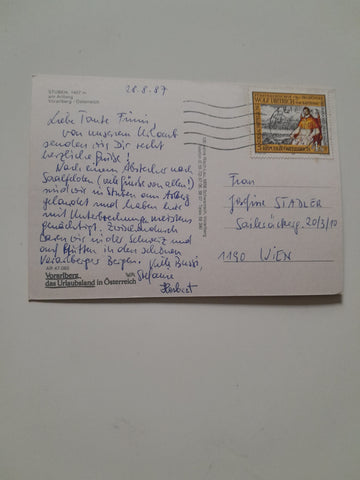 STUBEN, 1407 m
am Arlberg
Vorarlberg - Österreich
28.8.87
Liebe Tante Finni,
von unserem Urlaub
senden wir Dir recht
herzliche Grüße!
Nach einem Abstecher nach
Saalfelden (viele Grüße von allen!)
sind wir in Stuben am Arlberg
gelandet und haben hier
mit Unterbrechungen meistens
genächtigt. Zwischendurch
waren wir in der Schweiz und
auf Hütten in den schönen
Vorarlberger Bergen. Viele Bussi,
Stefanie
Herbert
AR 47 083
Vorarlberg,
das Urlaubsland in Österreich
WOLF DIETRICH
Frau
Josefine STADLER
20/3/10
1190 WIEN